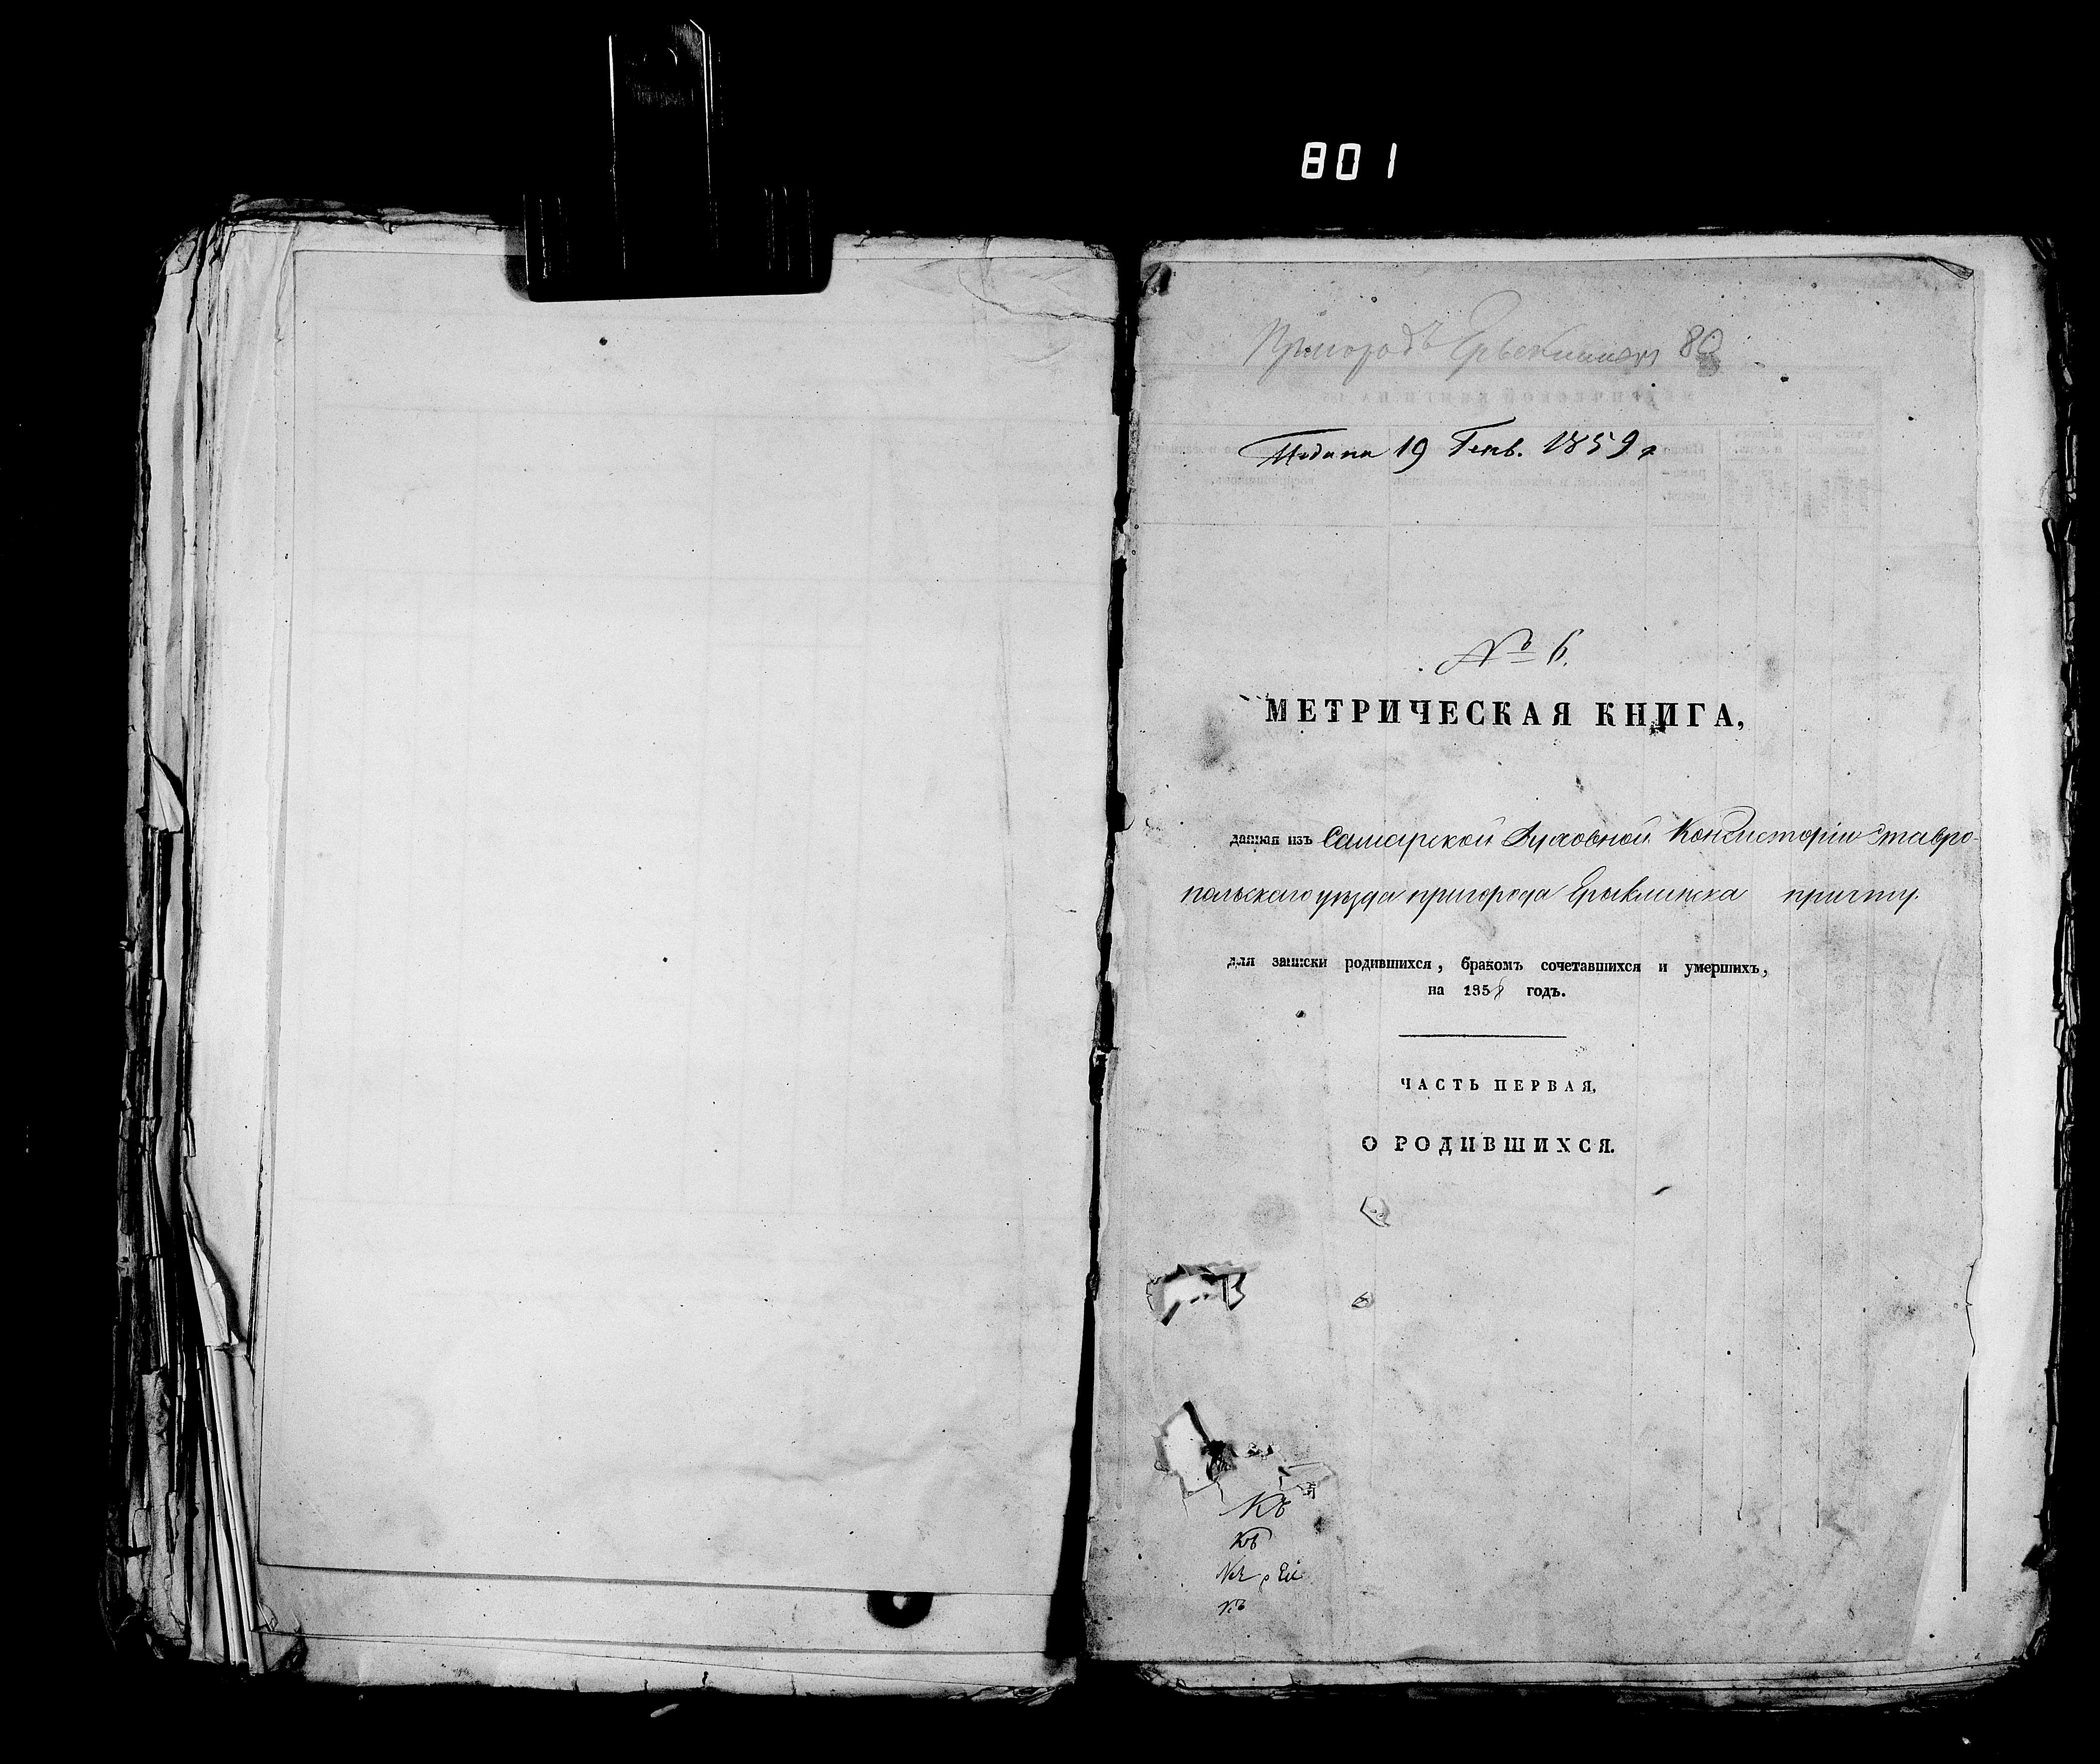 801
Пригородъ Ерыклинскъ 80
Подана 19 Генв. 1859 г
№ 6.
МЕТРИЧЕСКАЯ КНИГА,
данная изъ Самарской Духовной Консисторіи Ставро-
польскаго уѣзда пригорода Ерыклинска причту.
для записки родившихся, бракомъ сочетавшихся и умершихъ,
на 1858 годъ.
ЧАСТЬ ПЕРВАЯ,
О РОДИВШИХСЯ.
Къ